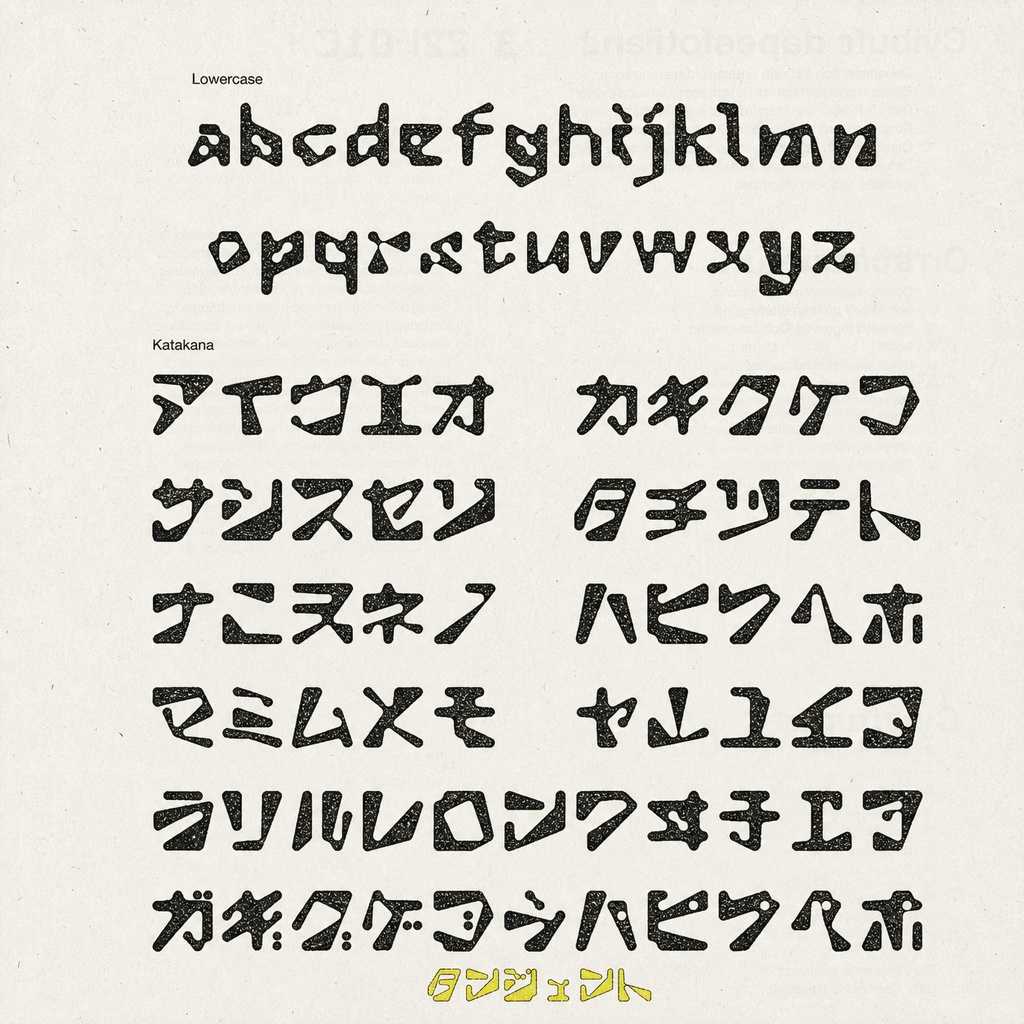 Lowercase
abcdefghijklmn
opqrstuvwxyz
Katakana
アイウエオ カキクケコ
サシスセソ タチツテト
ナニヌネノ ハヒクヘホ
マミムメモ ヤ ユイヨ
ラリルレロンワ チエヨ
ガギグゲゴ ハヒクヘホ
タンジェント